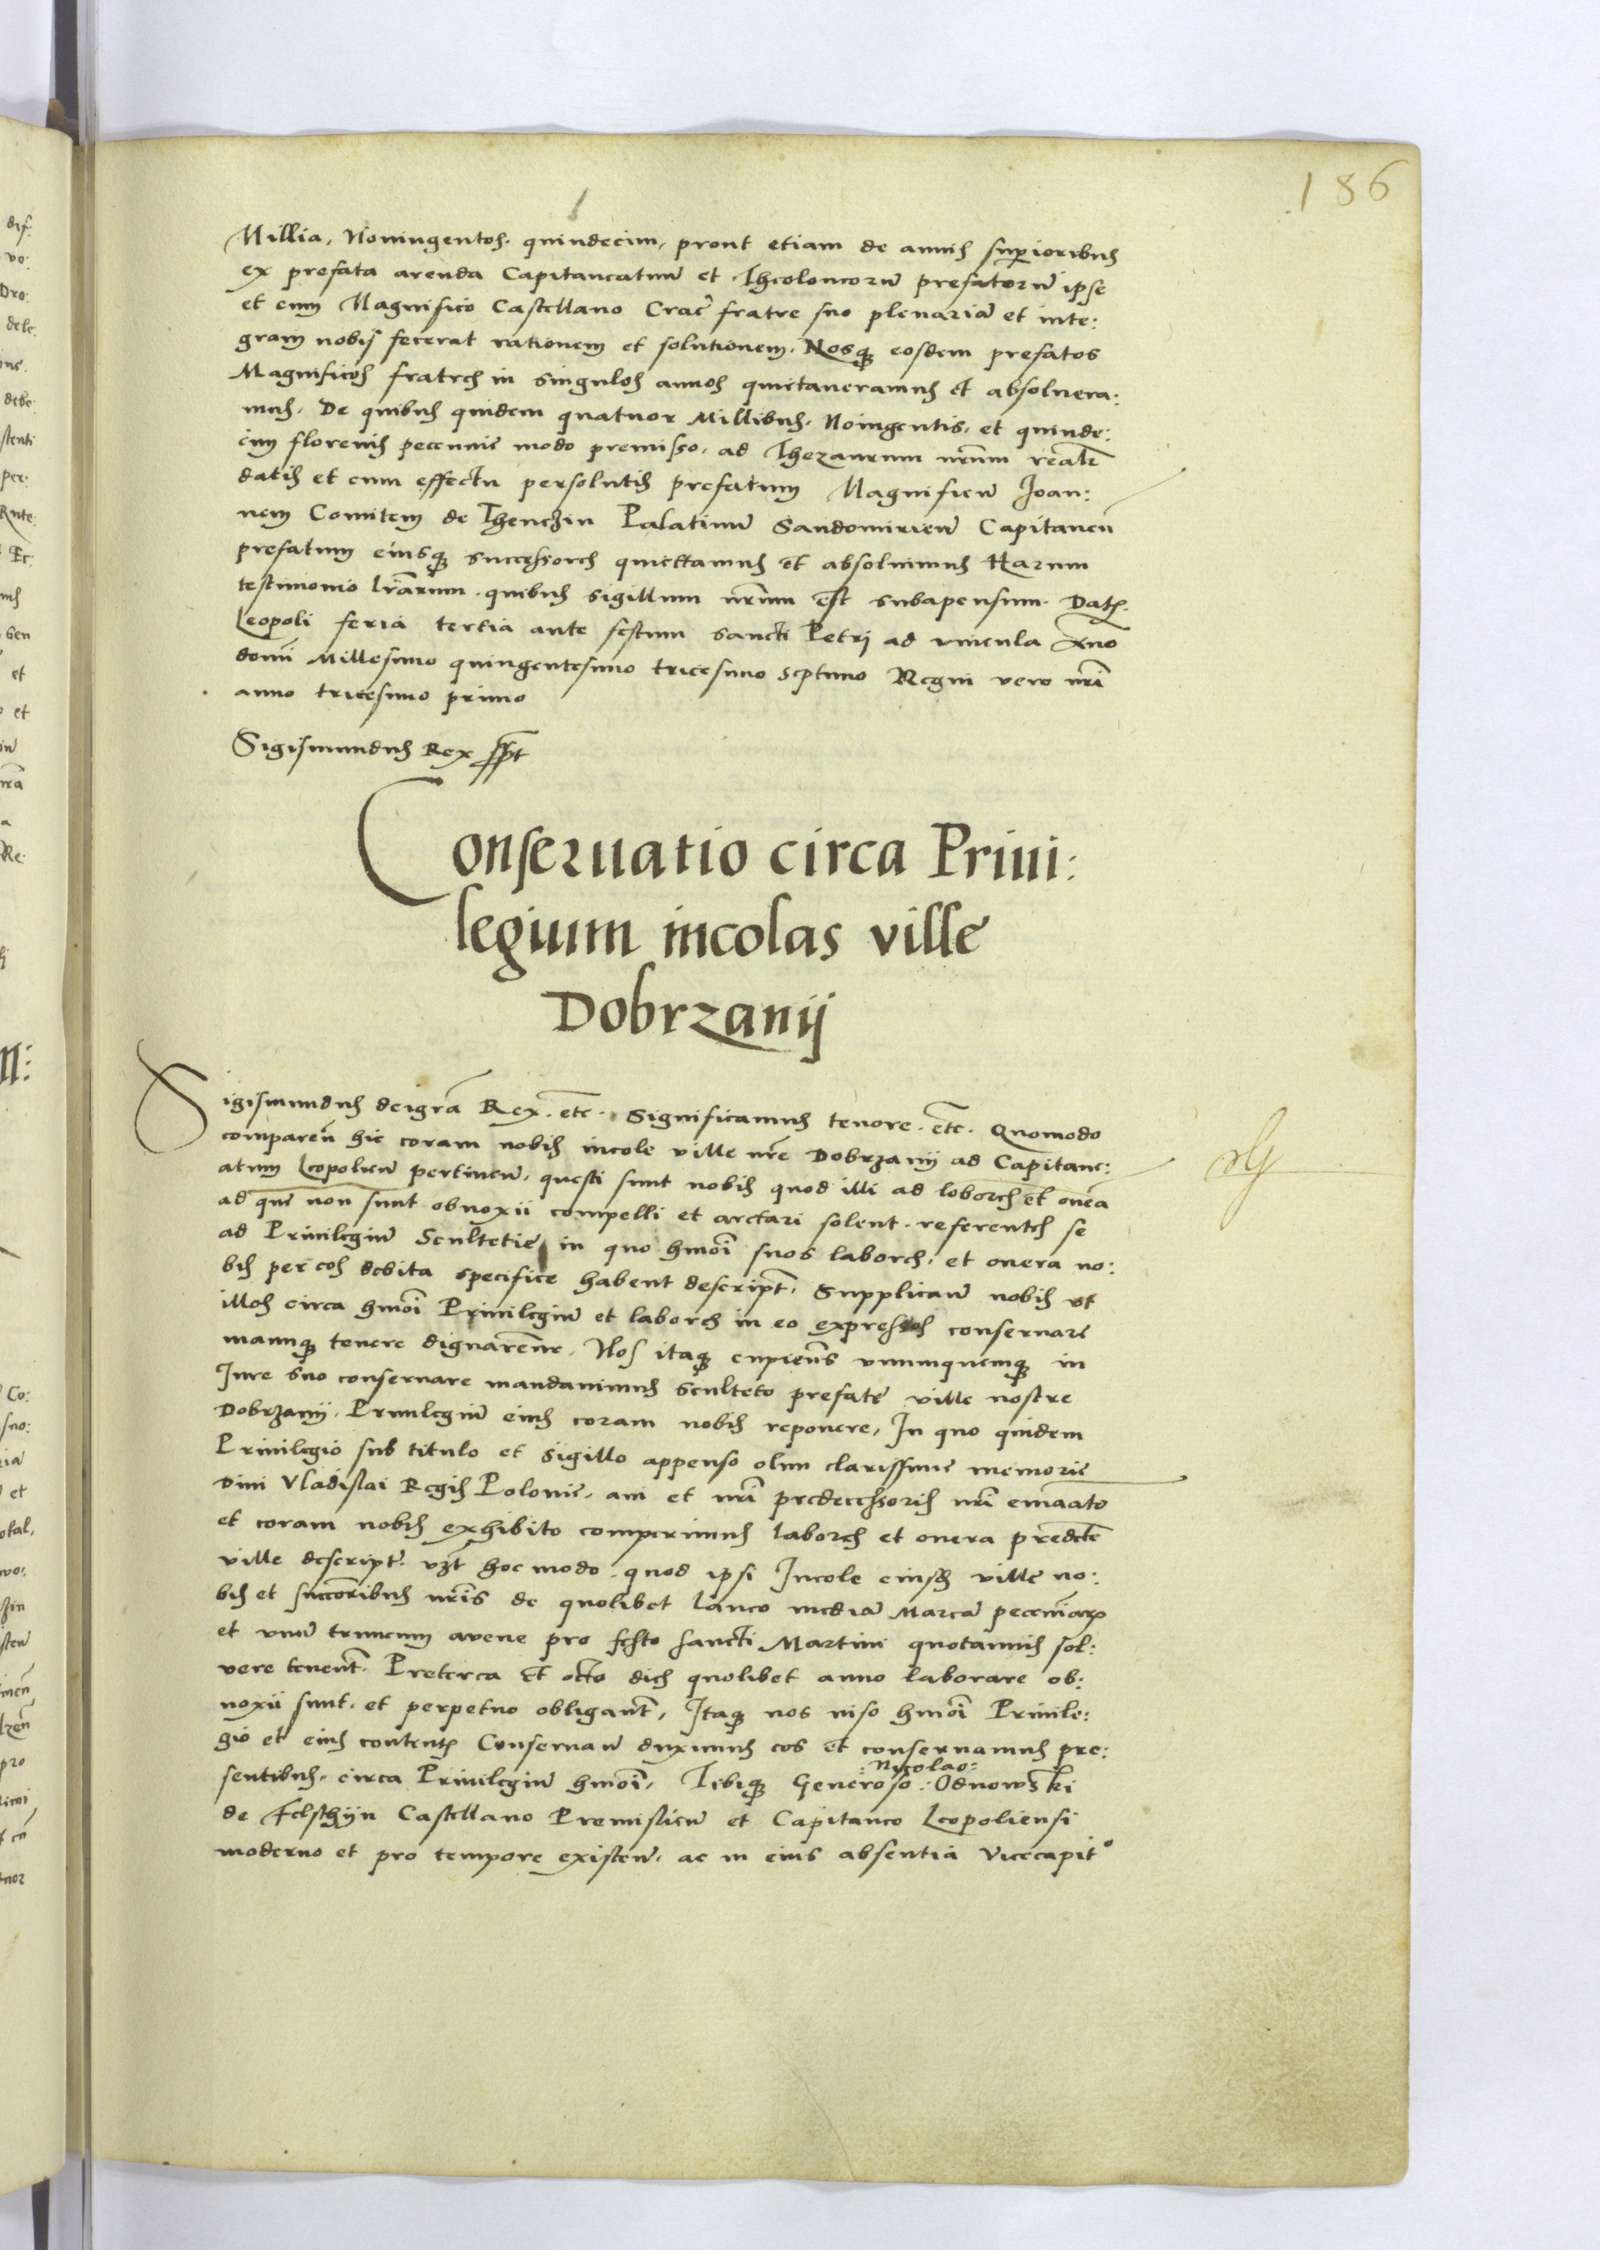 186
Millia, Noningentos quindecim, prout etiam de annis superioribus
ex prefata arenda Capitaneatuum et Theoloneorum prefatorum ipse
et cum Magnifico Castellano Crac̄ fratre suo plenariā et inte:
gram nobis fecerat rationem et solutionem. Nosq3 eosdem prefatos
Magnificos fratres in singulos annos quietaneramus et absoluera:
mus. De quibus quidem quatuor Millibus, Noingentis, et quinde:
cim florenis pecunnie modo premisso, ad Thezaurum nr̄um realr̄
datis et cum effectu persolutis prefatum Magnificū Joan:
nem Comitem de Thenczin Palatinū Sandomirien̄ Capitaneū
prefatum eiusq3 successores quiettamus et absoluimus Harum
testimonio lr̄arum quibus sigillum nr̄um est subapensum. Dat̄
Leopoli feria tertia ante festum sancti Petri ad vincula Año
domi Millesimo quingentesimo tricesimo septimo Regni vero nr̄i
anno tricesimo primo
Sigismundus Rex sspt
Conseruatio circa Priui:
legium incolas ville
Dobrzanij
Sigismundus dei gr̄a Rex. etc. Significamus tenore. etc. Quomodo
comparen̄ hic coram nobis incole ville nr̄e Dobrzanij ad Capitane:
atum Leopolien̄ pertinen̄, questi sunt nobis quod illi ad labores et onera
ad que non sunt obnoxii compelli et arctari solent. referentes se
ad Priuilegiū Scultetie in quo hmōi suos labores, et onera no:
bis per eos debita specifice habent descript̄. Supplican̄ nobis vt
illos circa hmōi Priuilegiū et labores in eo expressos conseruare
manuq3 tenere dignaremur. Nos itaq3 cupien̄s vnumquemq3 in
Jure suo conseruare mandauimus sculteto prefate ville nostre
Dobrzanij. Priuilegiū eius coram nobis reponere, In quo quidem
Priuilegio sub titulo et sigillo appenso olim clarissime memorie
Dini Vladislai Regis Polonie, aui et nr̄i predecessoris nr̄i emanato
et coram nobis exhibito comperimus labores et onera predicte
ville descript̄. vz̄t hoc modo. quod ipsi Incole eiusd3 ville no:
bis et succoribus nr̄is de quolibet laneo mediā Marcā pecuniarꝝ
et vnū truncum avene pro festo sancti Martini quotannis sol:
uere tenent̄. Preterea et octo dies quolibet anno laborare ob:
noxii sunt. et perpetuo obligant̄, Itaq3 nos viso hmōi Priuile:
gio et eius contentis Conseruan̄ duximus eos et conseruamus pre:
sentibus. circa Priuilegiū hmōi, Tibiq3 Generoso :Nicolao: Odnowski
de Felschtyn Castellano Premislien̄ et Capitaneo Leopoliensi
moderno et pro tempore existen̄. ac in eius absentia Vicecapit°